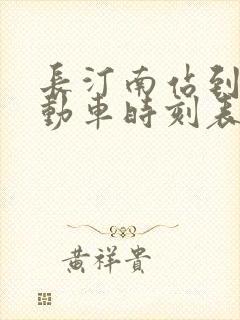 長汀南站到
動車時刻表
黄祥貴